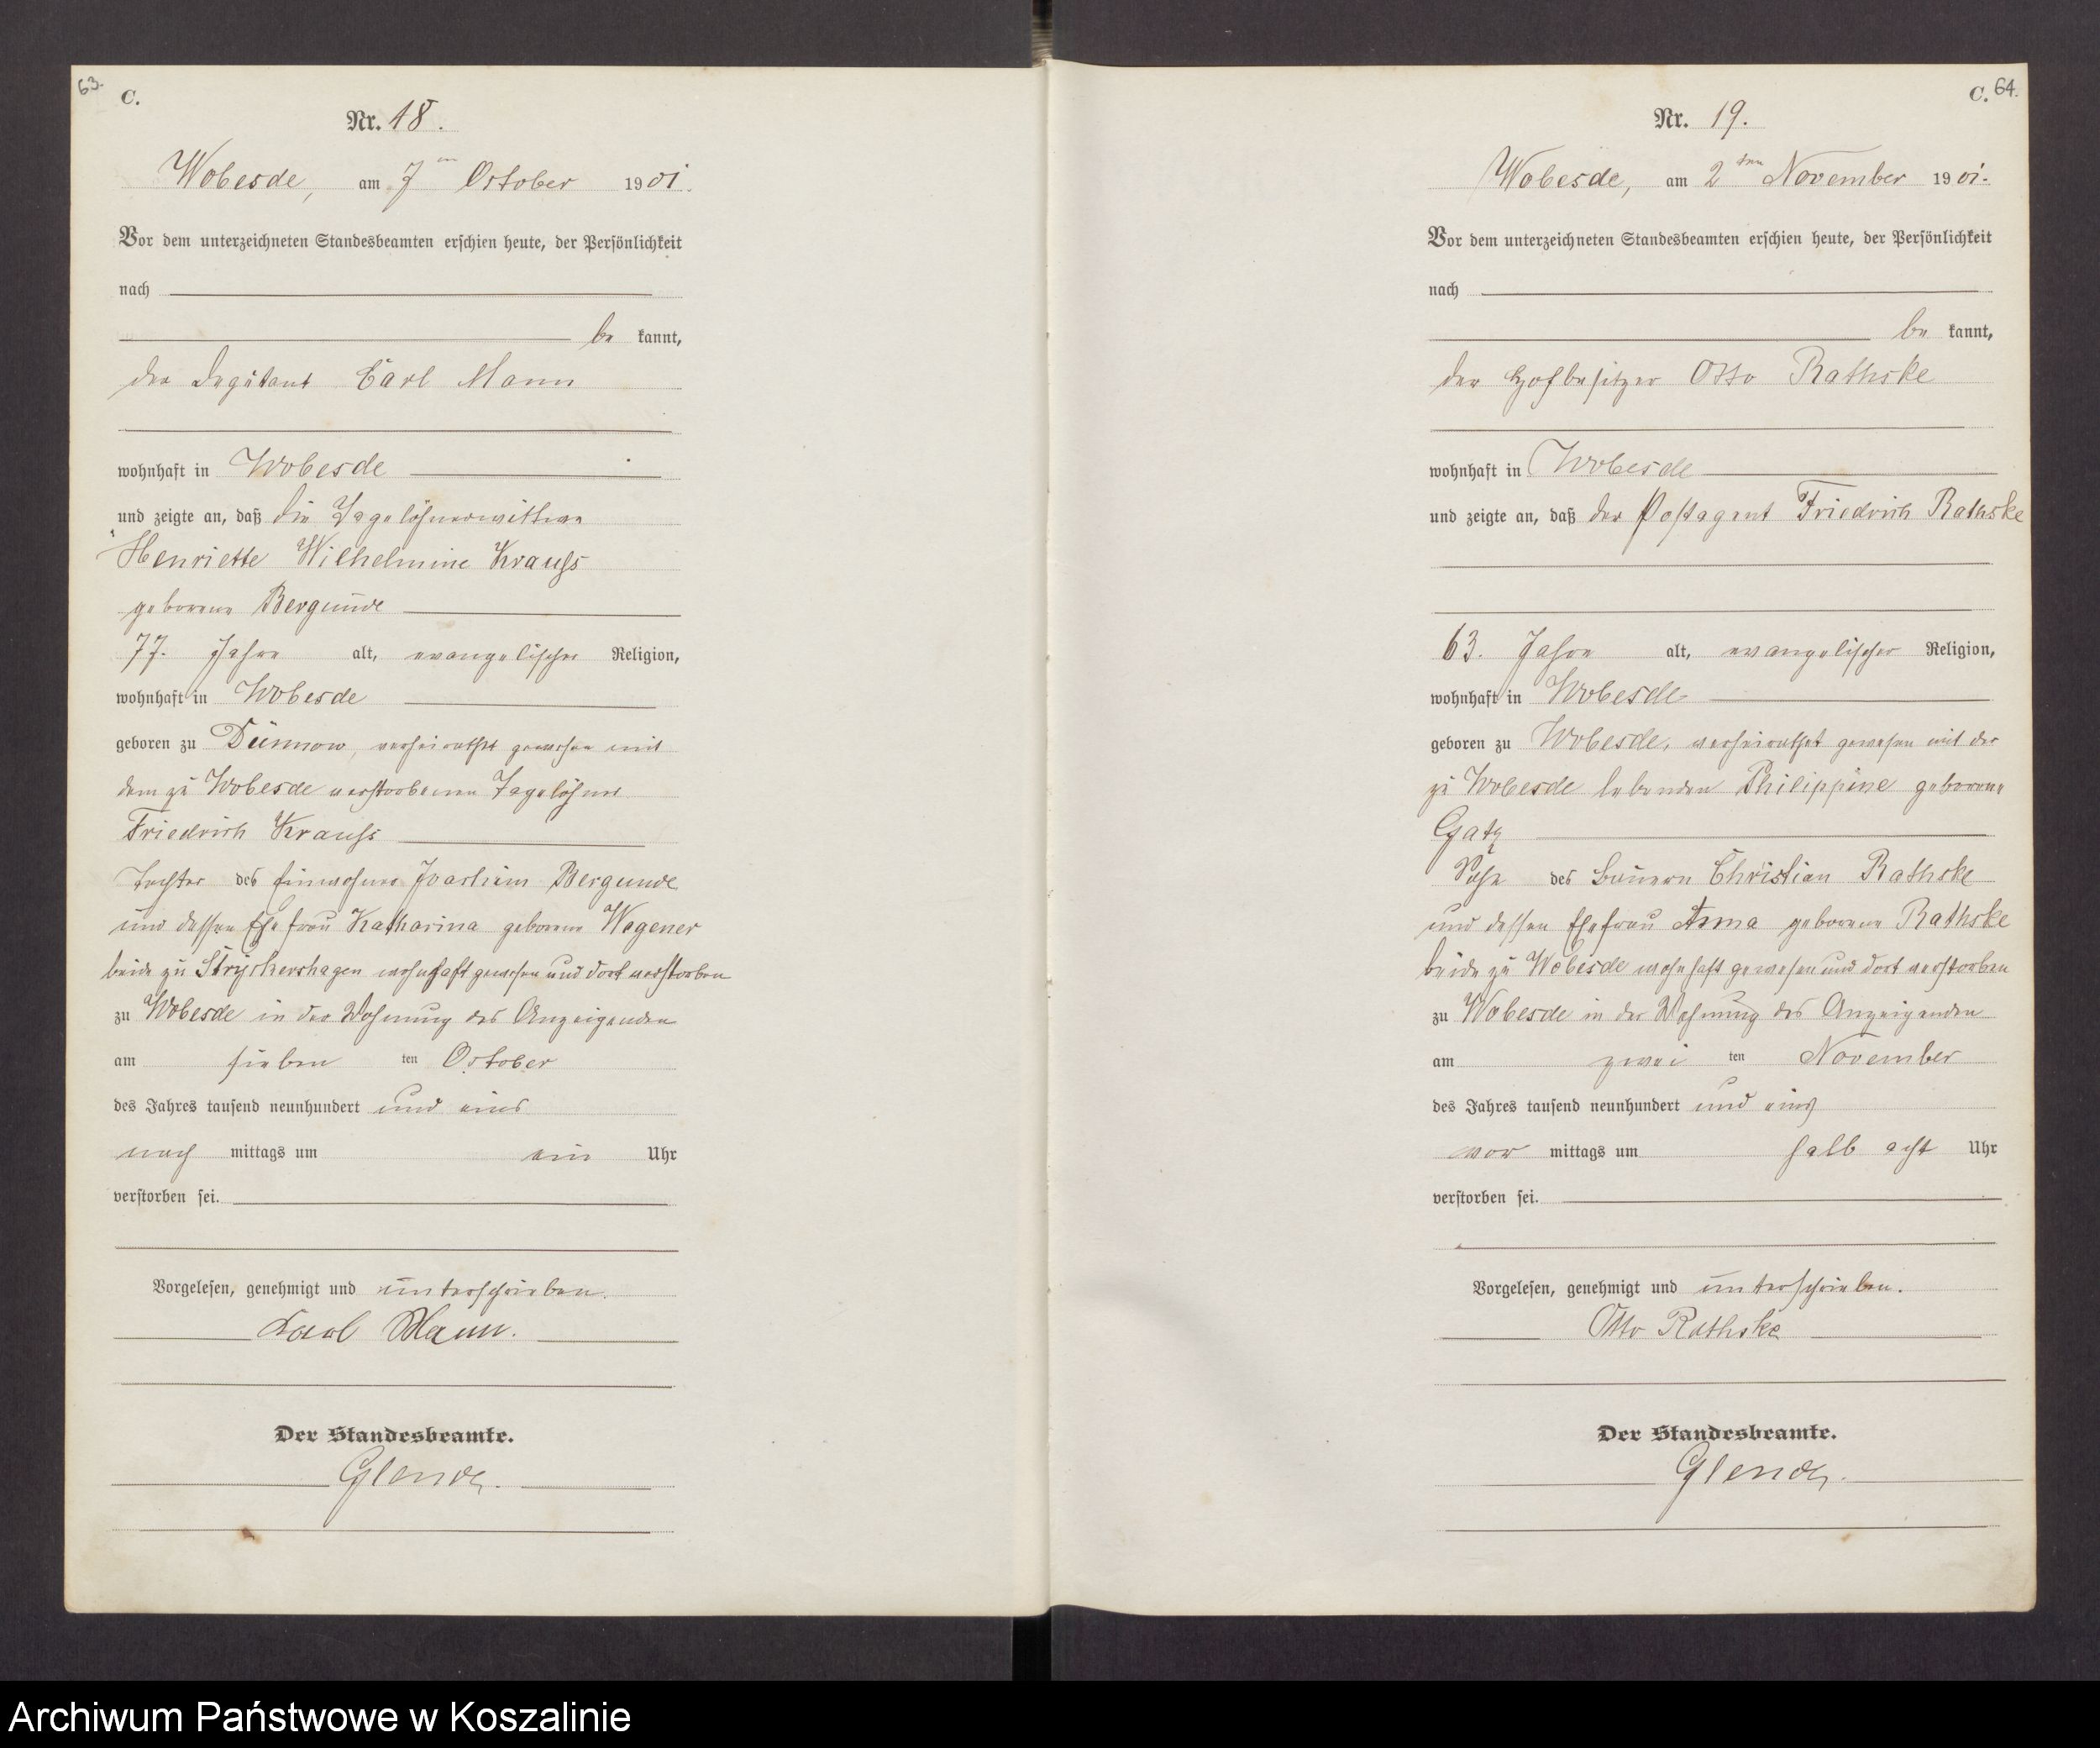 63.
C.
Nr. 18.
Wobesde, am 7ten October 1901.
Vor dem unterzeichneten Standesbeamten erschien heute, der Persönlichkeit
nach
be kannt,
der Deputant Carl Mann
wohnhaft in Wobesde
und zeigte an, daß die Tagelöhnerwittwe
Henriette Wilhelmine Krauß
geborene Bergunde
77. Jahre alt, evangelischer Religion,
wohnhaft in Wobesde
geboren zu Dünnow, verheirathet gewesen mit
dem zu Wobesde verstorbenen Tagelöhner
Friedrich Krauß
Tochter des Einwohner Joachim Bergunde
und dessen Ehefrau Katharina geborene Wegener
beide zu Strickershagen wohnhaft gewesen und dort verstorben
zu Wobesde in der Wohnung des Anzeigenden
am sieben ten October
des Jahres tausend neunhundert und eins
nach mittags um ein Uhr
verstorben sei.
Vorgelesen, genehmigt und unterschrieben.
Karl Mann.
Der Standesbeamte.
Glende.
C. 64.
Nr. 19.
Wobesde, am 2ten November 1901.
Vor dem unterzeichneten Standesbeamten erschien heute, der Persönlichkeit
nach
be kannt,
der Hofbesitzer Otto Rathske
wohnhaft in Wobesde
und zeigte an, daß der Postagent Friedrich Rathske
63. Jahre alt, evangelischer Religion,
wohnhaft in Wobesde
geboren zu Wobesde, verheirathet gewesen mit der
zu Wobesde lebenden Philippine geborene
Gatz
Sohn des Bauern Christian Rathske
und dessen Ehefrau Anna geborene Rathske
beide zu Wobesde wohnhaft gewesen und dort verstorben
zu Wobesde in der Wohnung des Anzeigenden
am zwei ten November
des Jahres tausend neunhundert und eins
vor mittags um halb acht Uhr
verstorben sei.
Vorgelesen, genehmigt und unterschrieben.
Otto Rathske
Der Standesbeamte.
Glende.
Archiwum Państwowe w Koszalinie